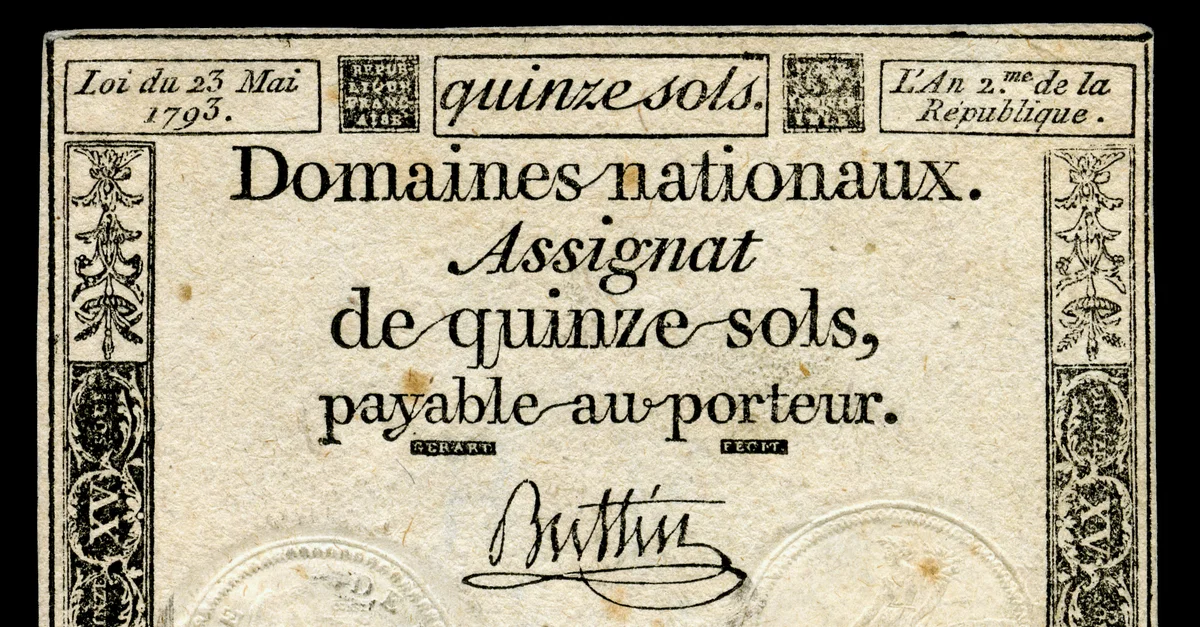 Loi du 23 Mai
1793.
REPUB
LIQUE
FRANÇ
AISE
quinze sols.
L'An 2.me de la
République.
Domaines nationaux.
Assignat
de quinze sols,
payable au porteur.
GERART. FECIT.
Buttin
XV XV
DE